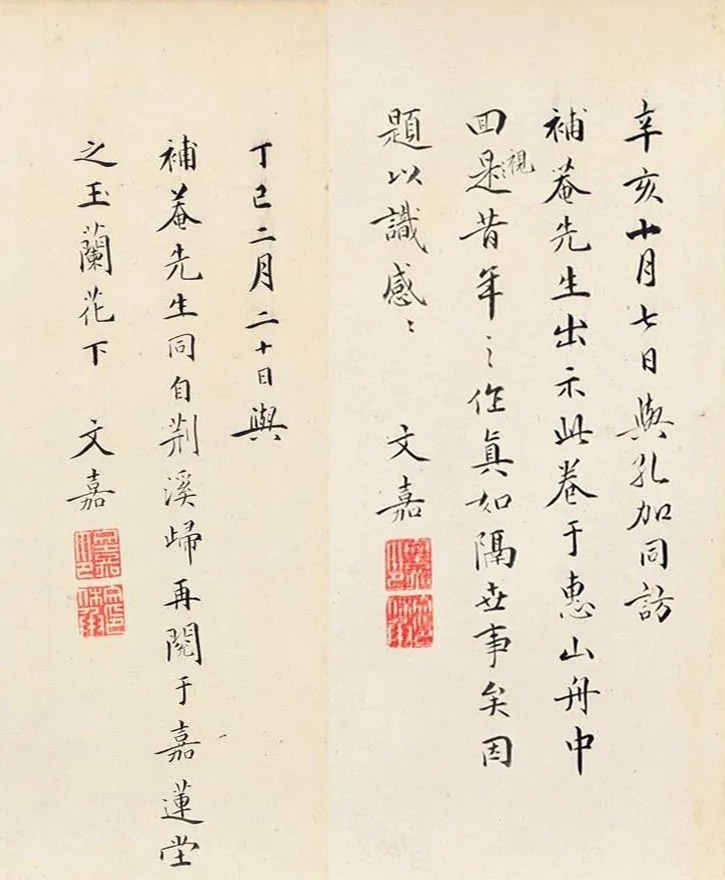 辛亥十月七日與孔加同訪
補菴先生出示此卷于惠山舟中
回視是昔年之作真如隔世事矣因
題以識感感
文嘉
丁巳二月二十日與
補菴先生同自荆溪歸再閱于嘉蓮堂
之玉蘭花下
文嘉